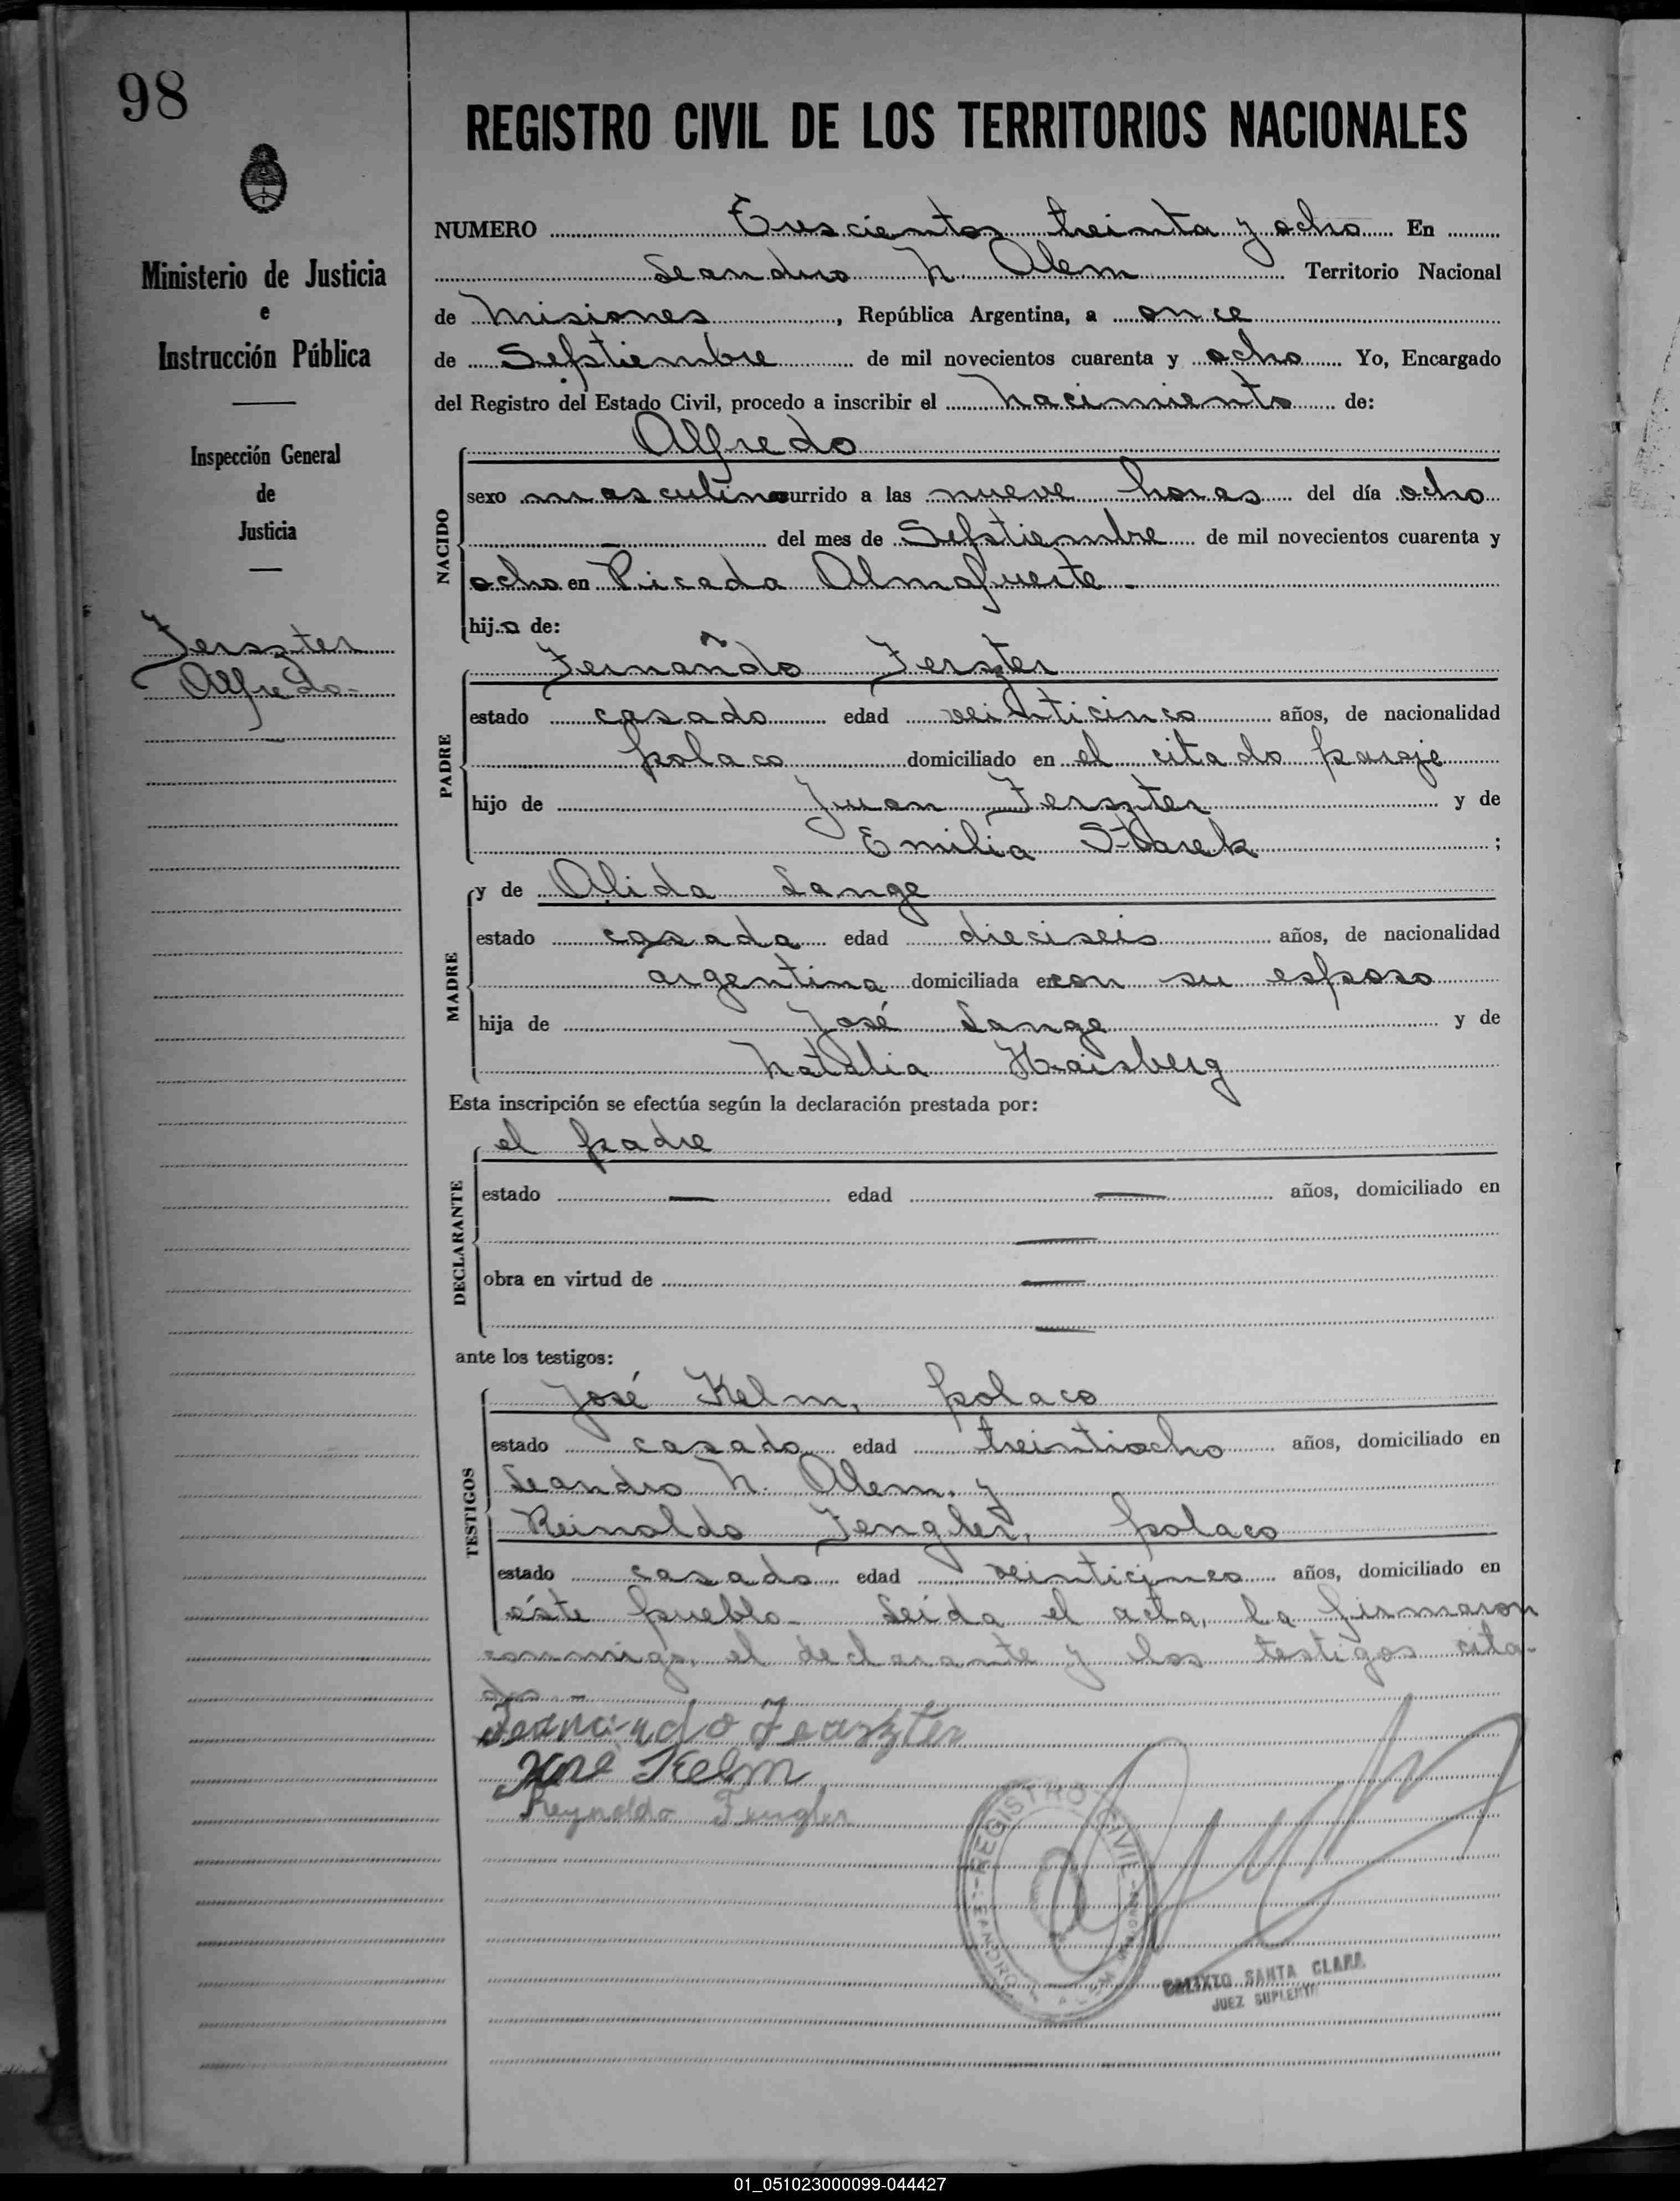 98
REGISTRO CIVIL DE LOS TERRITORIOS NACIONALES
Ministerio de Justicia
e
Instrucción Pública
Inspección General
de
Justicia
Ferszter
Alfredo-
NUMERO Trescientos treinta y ocho En
Leandro N. Alem Territorio Nacional
de Misiones, República Argentina, a once
de Septiembre de mil novecientos cuarenta y ocho Yo, Encargado
del Registro del Estado Civil, procedo a inscribir el nacimiento de:
NACIDO
Alfredo
sexo masculino ocurrido a las nueve horas del día ocho
del mes de Septiembre de mil novecientos cuarenta y
ocho en Picada Almafuerte -
hijo de:
PADRE
Fernando Ferszter
estado casado edad veinticinco años, de nacionalidad
polaco domiciliado en el citado paraje
hijo de Juan Ferszter y de
Emilia Starek ;
MADRE
y de Alida Lange
estado casada edad dieciseis años, de nacionalidad
argentina domiciliada en con su esposo
hija de José Lange y de
Natalia Haisberg
Esta inscripción se efectúa según la declaración prestada por:
DECLARANTE
el padre
estado — edad — años, domiciliado en
obra en virtud de —
ante los testigos:
TESTIGOS
José Kelm, polaco
estado casado edad treintiocho años, domiciliado en
Leandro N. Alem, y
Reinoldo Fengler, polaco
estado casado edad veinticinco años, domiciliado en
éste pueblo- Leída el acta, la firmaron
conmigo, el declarante y los testigos cita-
dos -
Fernando Ferszter
José Kelm
Reynoldo Fengler
REGISTRO CIVIL
LEANDRO N. ALEM
CALIXTO SANTA CLARA
JUEZ SUPLENTE
01_051023000099-044427